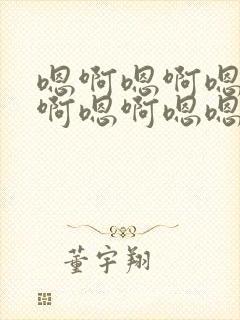 嗯啊嗯啊嗯
啊嗯啊嗯嗯
董宇翔